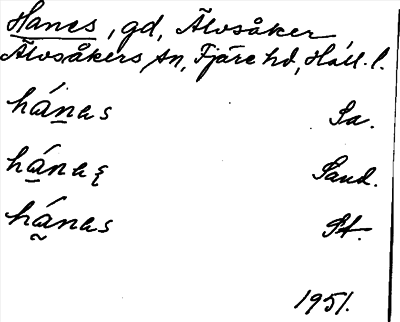 Hanes, gd, Älvsåker
Älvsåkers sn, Fjäre hd, Hall. l.
hánas Sa.
hánaʂ Sand.
hánas St.
1951.